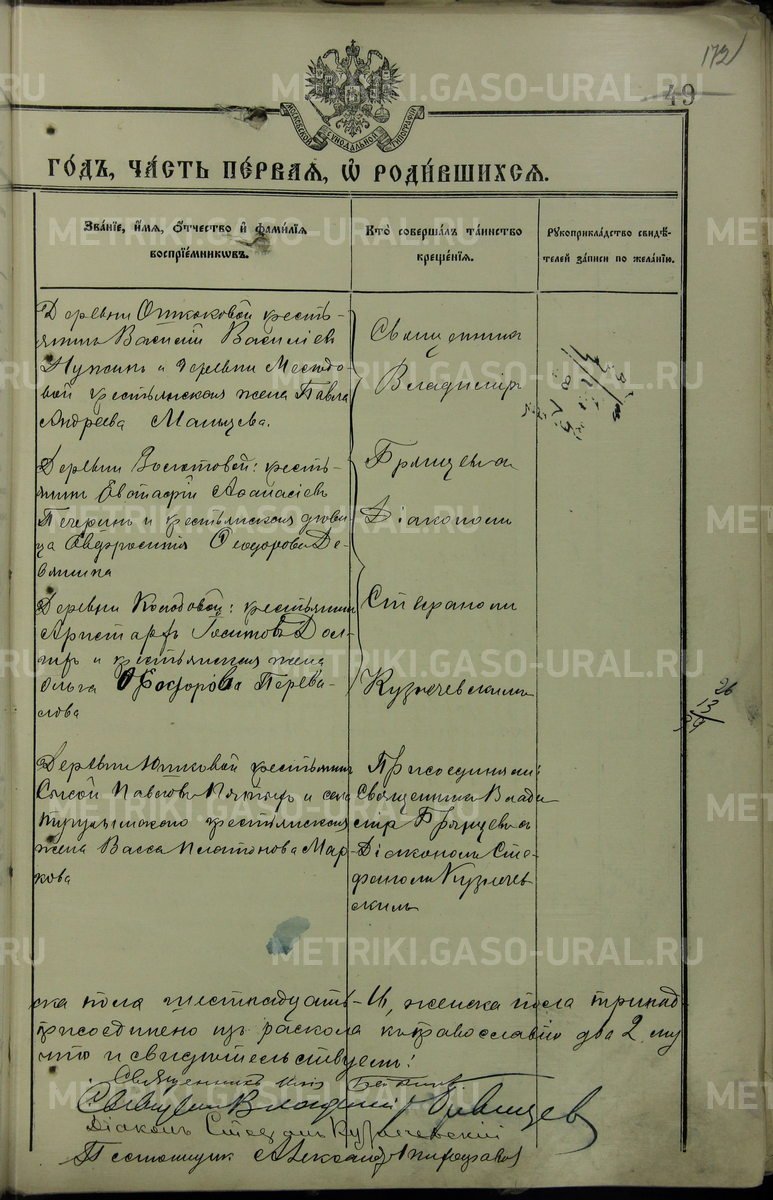 172
49
МОСКОВСКОЙ СѴНОДАЛЬНОЙ ТИПОГРАФІИ
ГО́ДЪ, ЧА́СТЬ ПЕ́РВАЯ, Ѡ РОДИ́ВШИХСЯ.
Зва́нїе, и́мя, о́тчество и фами́лїя
воспрїе́мниковъ.
Кто̀ соверша́лъ та́инство
креще́нїя.
Рукоприкла́дство свидѣ́-
телей за́писи по жела́нію.
Деревни кресть-
янинъ Василій Василіев
и деревни
вой крестьянская жена Павла
Андреева Мальцева.
Священникъ
Владиміръ
Брянцевъ
Діакономъ
Стефаномъ
Кузнечевскимъ
Деревни Золотовой: кресть-
янинъ Евстафій Аѳанасіевъ
Печеринъ и крестьянская дѣви-
ца Евфросинія Ѳеодорова Де-
вяшина
Деревни Колодовой: крестьянинъ
Аристархъ Дол-
и крестьянская жена
Ольга Ѳеодорова Перева-
лова
Деревни Юшковой крестьянинъ
Сысой Павловъ и села
Тугулымскаго крестьянская
жена Васса Платонова Мар-
кова
Присоединяли:
Священникъ Влади
міръ Брянцевъ
Діакономъ Сте-
фаномъ Кузнечев
скимъ
26
13
39
ска пола шестнадцать-16, женска пола тринад-
присоединено изъ раскола къ православію два 2 му
что и свидѣтельствуемъ:
Священникъ
Священникъ Владиміръ Брянцев
Діаконъ Стефанъ Кузнечевскій
Псаломщик Александр
METRIKI.GASO-URAL.RU